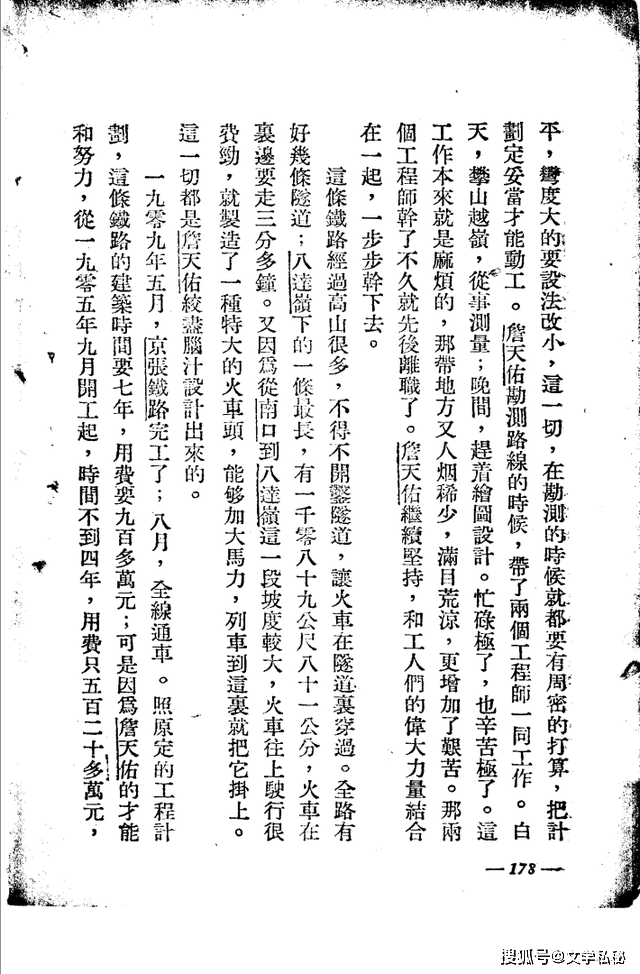 平，彎度大的要設法改小，這一切，在勘測的時候就都要有周密的打算，把計
劃定妥當才能動工。詹天佑勘測路線的時候，帶了兩個工程師一同工作。白
天，攀山越嶺，從事測量；晚間，趕着繪圖設計。忙碌極了，也辛苦極了。這
工作本來就是麻煩的，那帶地方又人烟稀少，滿目荒涼，更增加了艱苦。那兩
個工程師幹了不久就先後離職了。詹天佑繼續堅持，和工人們的偉大力量結合
在一起，一步步幹下去。
這條鐵路經過高山很多，不得不開鑿隧道，讓火車在隧道裏穿過。全路有
好幾條隧道；八達嶺下的一條最長，有一千零八十九公尺八十一公分，火車在
裏邊要走三分多鐘。又因爲從南口到八達嶺這一段坡度較大，火車往上駛行很
費勁，就製造了一種特大的火車頭，能够加大馬力，列車到這裏就把它掛上。
這一切都是詹天佑絞盡腦汁設計出來的。
一九零九年五月，京張鐵路完工了；八月，全線通車。照原定的工程計
劃，這條鐵路的建築時間要七年，用費要九百多萬元；可是因爲詹天佑的才能
和努力，從一九零五年九月開工起，時間不到四年，用費只五百二十多萬元，
—178—
搜狐号@文学私秘